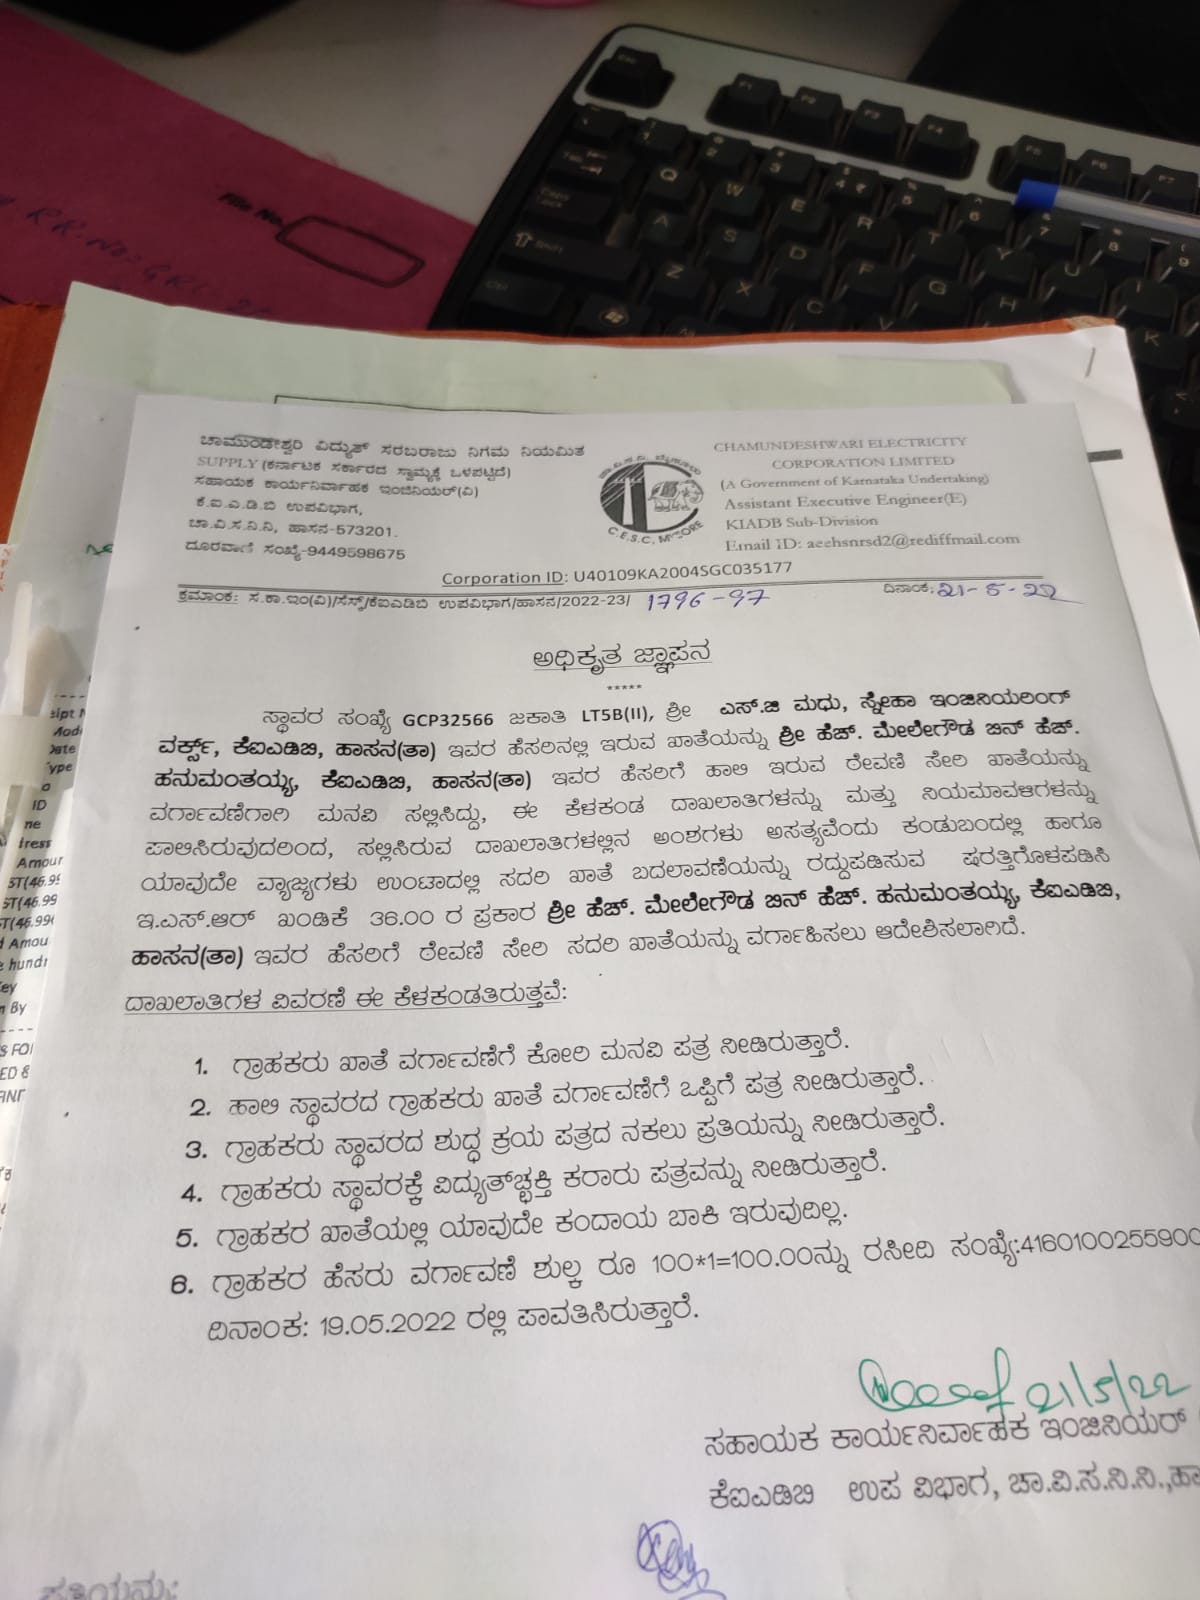 File No.
ಚಾಮುಂಡೇಶ್ವರಿ ವಿದ್ಯುತ್ ಸರಬರಾಜು ನಿಗಮ ನಿಯಮಿತ
SUPPLY (ಕರ್ನಾಟಕ ಸರ್ಕಾರದ ಸ್ವಾಮ್ಯಕ್ಕೆ ಒಳಪಟ್ಟಿದೆ)
ಸಹಾಯಕ ಕಾರ್ಯನಿರ್ವಾಹಕ ಇಂಜಿನಿಯರ್(ವಿ)
ಕೆ.ಐ.ಎ.ಡಿ.ಬಿ ಉಪವಿಭಾಗ,
ಚಾ.ವಿ.ಸ.ನಿ.ನಿ, ಹಾಸನ-573201.
ದೂರವಾಣಿ ಸಂಖ್ಯೆ-9449598675
C.E.S.C, MYSORE
CHAMUNDESHWARI ELECTRICITY
CORPORATION LIMITED
(A Government of Karnataka Undertaking)
Assistant Executive Engineer(E)
KIADB Sub-Division
Email ID: aeehsnrsd2@rediffmail.com
Corporation ID: U40109KA2004SGC035177
ಕ್ರಮಾಂಕ: ಸ.ಕಾ.ಇಂ(ವಿ)/ಸೆಸ್ಕ್/ಕೆಐಎಡಿಬಿ ಉಪವಿಭಾಗ/ಹಾಸನ/2022-23/ 1796-97 ದಿನಾಂಕ: 21-5-22
ಅಧಿಕೃತ ಜ್ಞಾಪನ
*****
ಸ್ಥಾವರ ಸಂಖ್ಯೆ GCP32566 ಜಕಾತಿ LT5B(II), ಶ್ರೀ ಎಸ್.ಜಿ ಮಧು, ಸ್ನೇಹಾ ಇಂಜಿನಿಯರಿಂಗ್
ವರ್ಕ್ಸ್, ಕೆಐಎಡಿಬಿ, ಹಾಸನ(ತಾ) ಇವರ ಹೆಸರಿನಲ್ಲಿ ಇರುವ ಖಾತೆಯನ್ನು ಶ್ರೀ ಹೆಚ್. ಮೇಲೇಗೌಡ ಬಿನ್ ಹೆಚ್.
ಹನುಮಂತಯ್ಯ, ಕೆಐಎಡಿಬಿ, ಹಾಸನ(ತಾ) ಇವರ ಹೆಸರಿಗೆ ಹಾಲಿ ಇರುವ ಠೇವಣಿ ಸೇರಿ ಖಾತೆಯನ್ನು
ವರ್ಗಾವಣೆಗಾಗಿ ಮನವಿ ಸಲ್ಲಿಸಿದ್ದು, ಈ ಕೆಳಕಂಡ ದಾಖಲಾತಿಗಳನ್ನು ಮತ್ತು ನಿಯಮಾವಳಿಗಳನ್ನು
ಪಾಲಿಸಿರುವುದರಿಂದ, ಸಲ್ಲಿಸಿರುವ ದಾಖಲಾತಿಗಳಲ್ಲಿನ ಅಂಶಗಳು ಅಸತ್ಯವೆಂದು ಕಂಡುಬಂದಲ್ಲಿ ಹಾಗೂ
ಯಾವುದೇ ವ್ಯಾಜ್ಯಗಳು ಉಂಟಾದಲ್ಲಿ ಸದರಿ ಖಾತೆ ಬದಲಾವಣೆಯನ್ನು ರದ್ದುಪಡಿಸುವ ಷರತ್ತಿಗೊಳಪಡಿಸಿ
ಇ.ಎಸ್.ಆರ್ ಖಂಡಿಕೆ 36.00 ರ ಪ್ರಕಾರ ಶ್ರೀ ಹೆಚ್. ಮೇಲೇಗೌಡ ಬಿನ್ ಹೆಚ್. ಹನುಮಂತಯ್ಯ, ಕೆಐಎಡಿಬಿ,
ಹಾಸನ(ತಾ) ಇವರ ಹೆಸರಿಗೆ ಠೇವಣಿ ಸೇರಿ ಸದರಿ ಖಾತೆಯನ್ನು ವರ್ಗಾಹಿಸಲು ಆದೇಶಿಸಲಾಗಿದೆ.
ದಾಖಲಾತಿಗಳ ವಿವರಣೆ ಈ ಕೆಳಕಂಡತಿರುತ್ತವೆ:
1. ಗ್ರಾಹಕರು ಖಾತೆ ವರ್ಗಾವಣೆಗೆ ಕೋರಿ ಮನವಿ ಪತ್ರ ನೀಡಿರುತ್ತಾರೆ.
2. ಹಾಲಿ ಸ್ಥಾವರದ ಗ್ರಾಹಕರು ಖಾತೆ ವರ್ಗಾವಣೆಗೆ ಒಪ್ಪಿಗೆ ಪತ್ರ ನೀಡಿರುತ್ತಾರೆ.
3. ಗ್ರಾಹಕರು ಸ್ಥಾವರದ ಶುದ್ಧ ಕ್ರಯ ಪತ್ರದ ನಕಲು ಪ್ರತಿಯನ್ನು ನೀಡಿರುತ್ತಾರೆ.
4. ಗ್ರಾಹಕರು ಸ್ಥಾವರಕ್ಕೆ ವಿದ್ಯುತ್‌ಚ್ಛಕ್ತಿ ಕರಾರು ಪತ್ರವನ್ನು ನೀಡಿರುತ್ತಾರೆ.
5. ಗ್ರಾಹಕರ ಖಾತೆಯಲ್ಲಿ ಯಾವುದೇ ಕಂದಾಯ ಬಾಕಿ ಇರುವುದಿಲ್ಲ.
6. ಗ್ರಾಹಕರ ಹೆಸರು ವರ್ಗಾವಣೆ ಶುಲ್ಕ ರೂ 100*1=100.00ನ್ನು ರಸೀದಿ ಸಂಖ್ಯೆ:4160100255900
ದಿನಾಂಕ: 19.05.2022 ರಲ್ಲಿ ಪಾವತಿಸಿರುತ್ತಾರೆ.
21/5/22
ಸಹಾಯಕ ಕಾರ್ಯನಿರ್ವಾಹಕ ಇಂಜಿನಿಯರ್
ಕೆಐಎಡಿಬಿ ಉಪ ವಿಭಾಗ, ಚಾ.ವಿ.ಸ.ನಿ.ನಿ.,ಹಾ